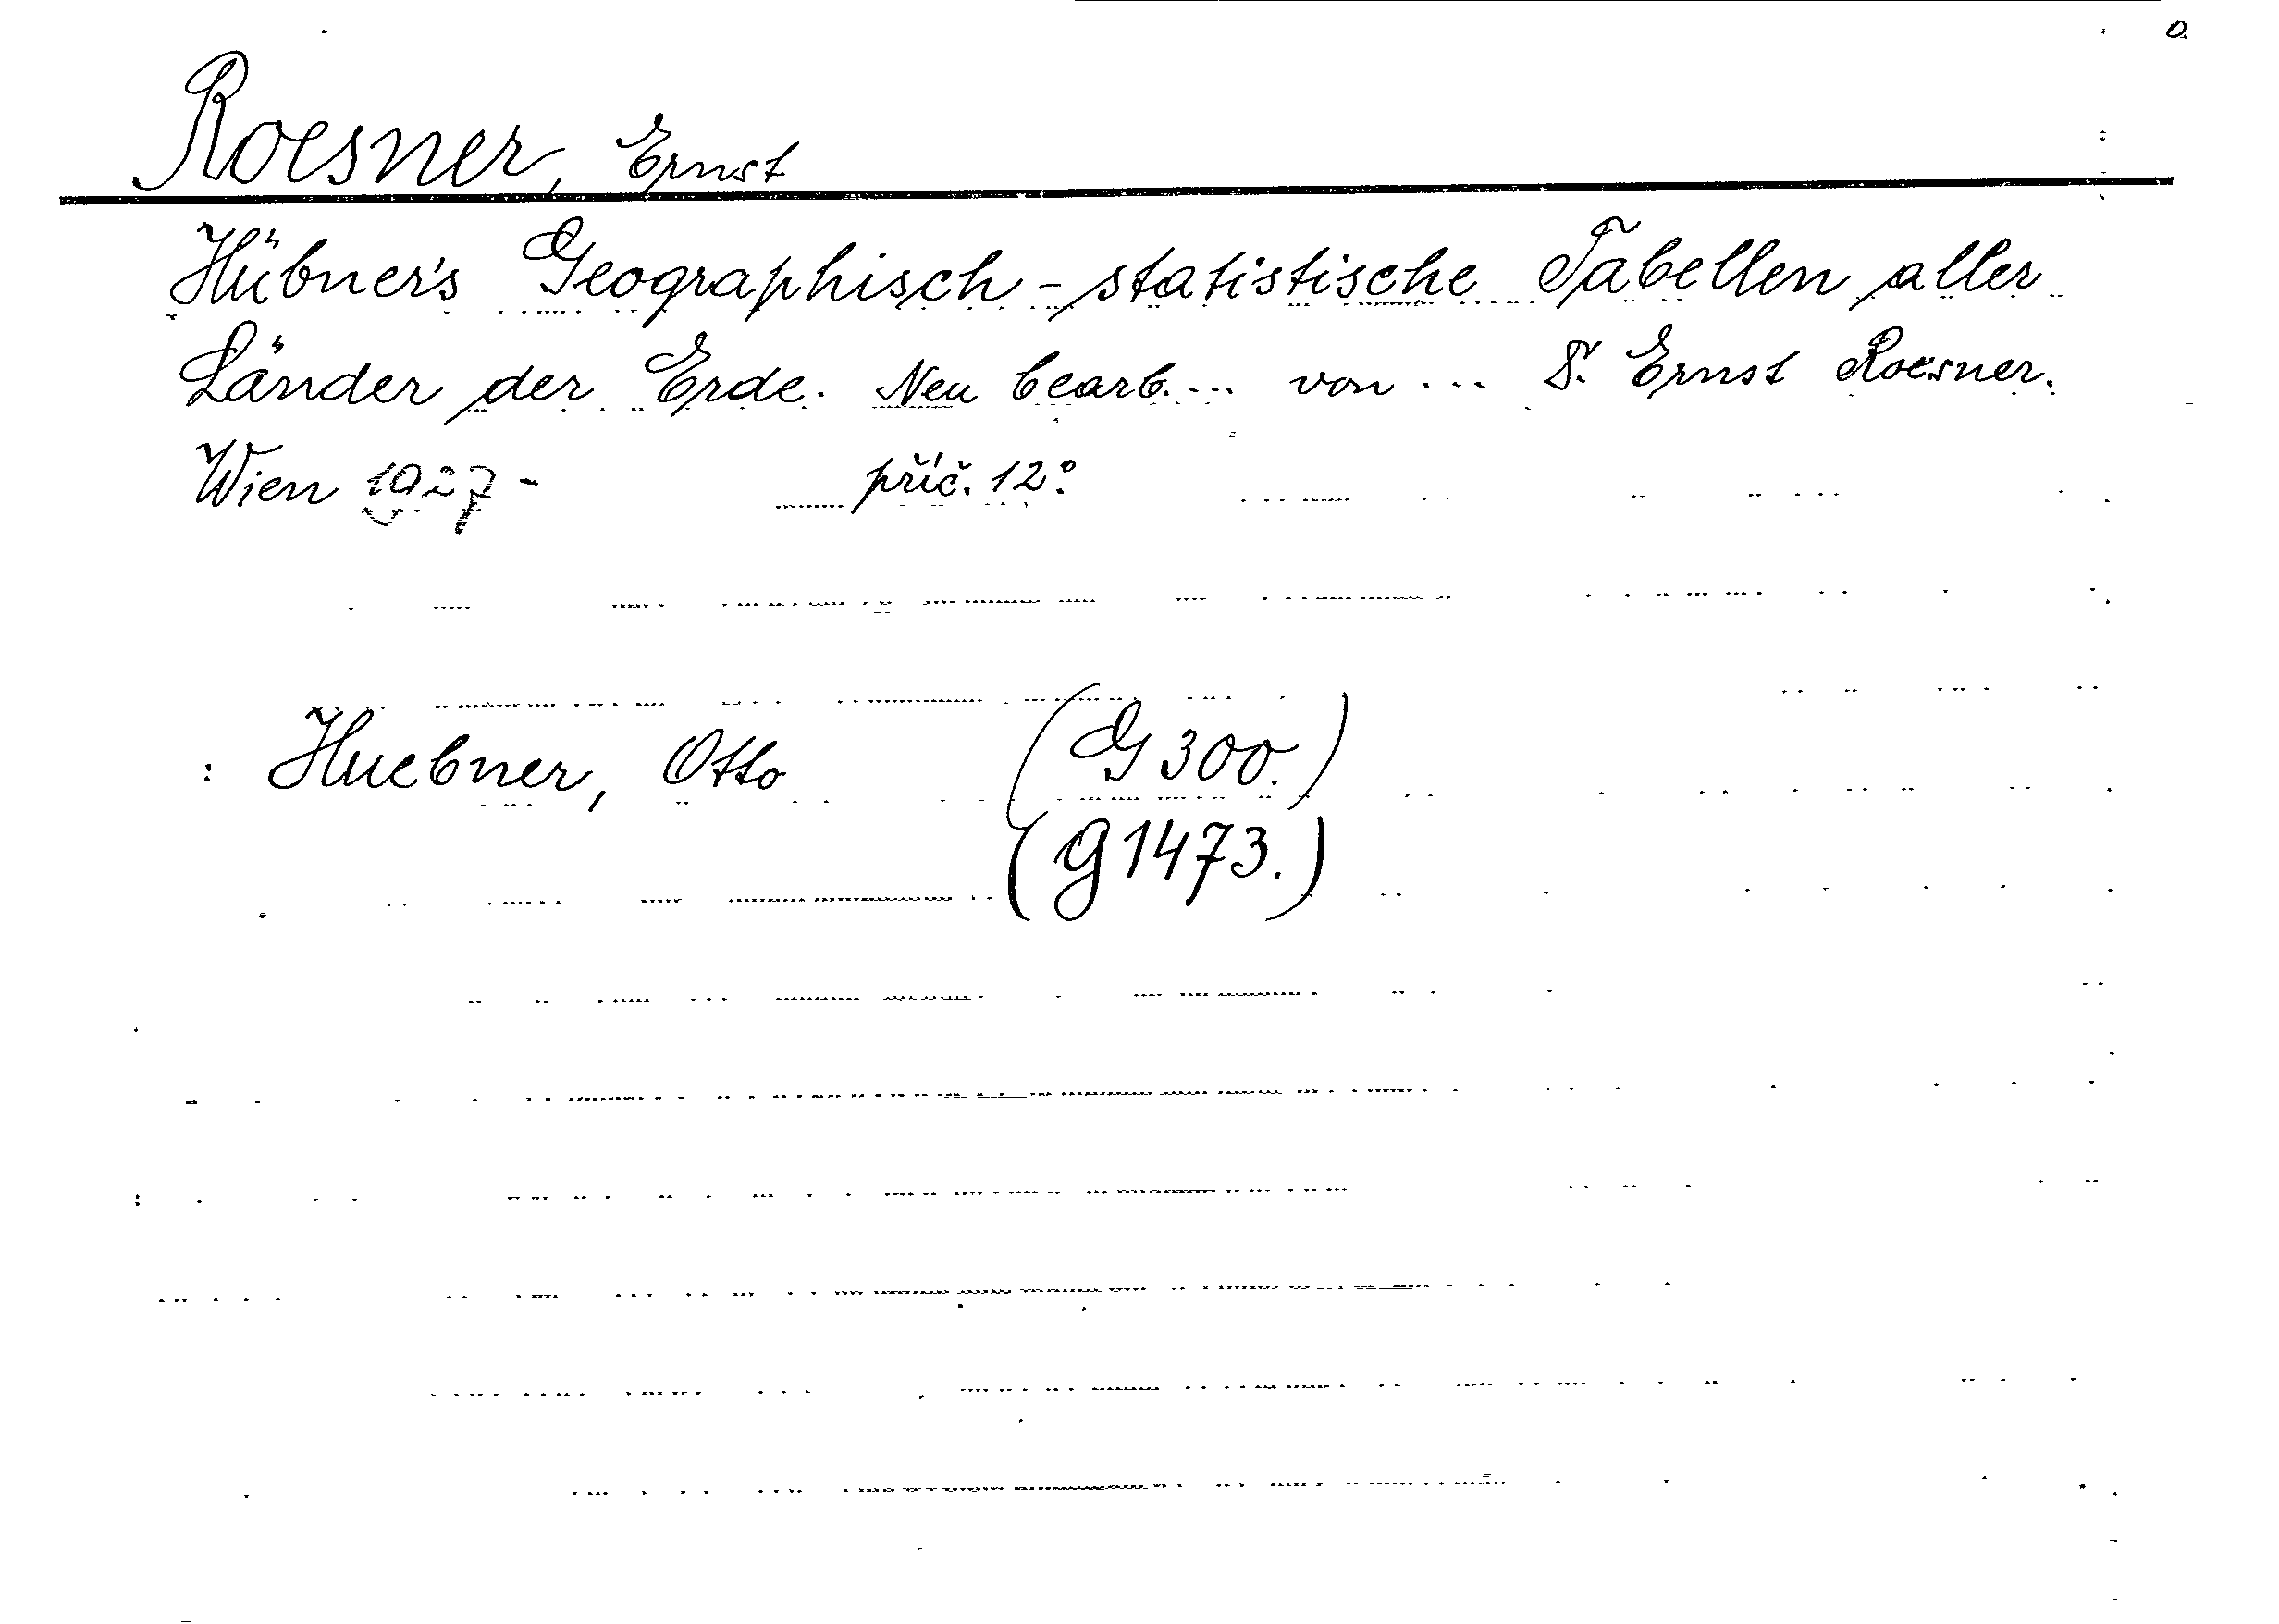 Roesner, Ernst
Hübner's Geographisch-statistische Tabellen aller
Länder der Erde. Neu bearb... von ... D. Ernst Roesner.
Wien 1927- příč. 12°
: Huebner, Otto (G 300.)
(g 1473.)